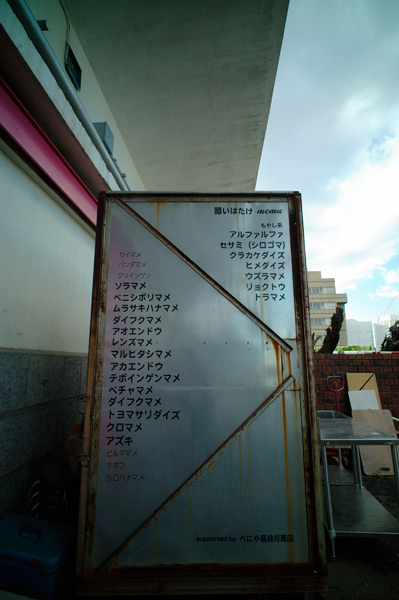 暗いはたけ memu
もやし系
アルファルファ
セサミ (シロゴマ)
クラカケダイズ
ヒメダイズ
ウズラマメ
リョクトウ
トラマメ
カイマメ
パンダマメ
クソインゲン
ソラマメ
ベニシボリマメ
ムラサキハナマメ
ダイフクマメ
アオエンドウ
レンズマメ
マルヒタシマメ
アカエンドウ
テボインゲンマメ
ペチャマメ
ダイフクマメ
トヨマサリダイズ
クロマメ
アズキ
ビルママメ
ナボウ
シロハナマメ
supported by べにや長谷川商店